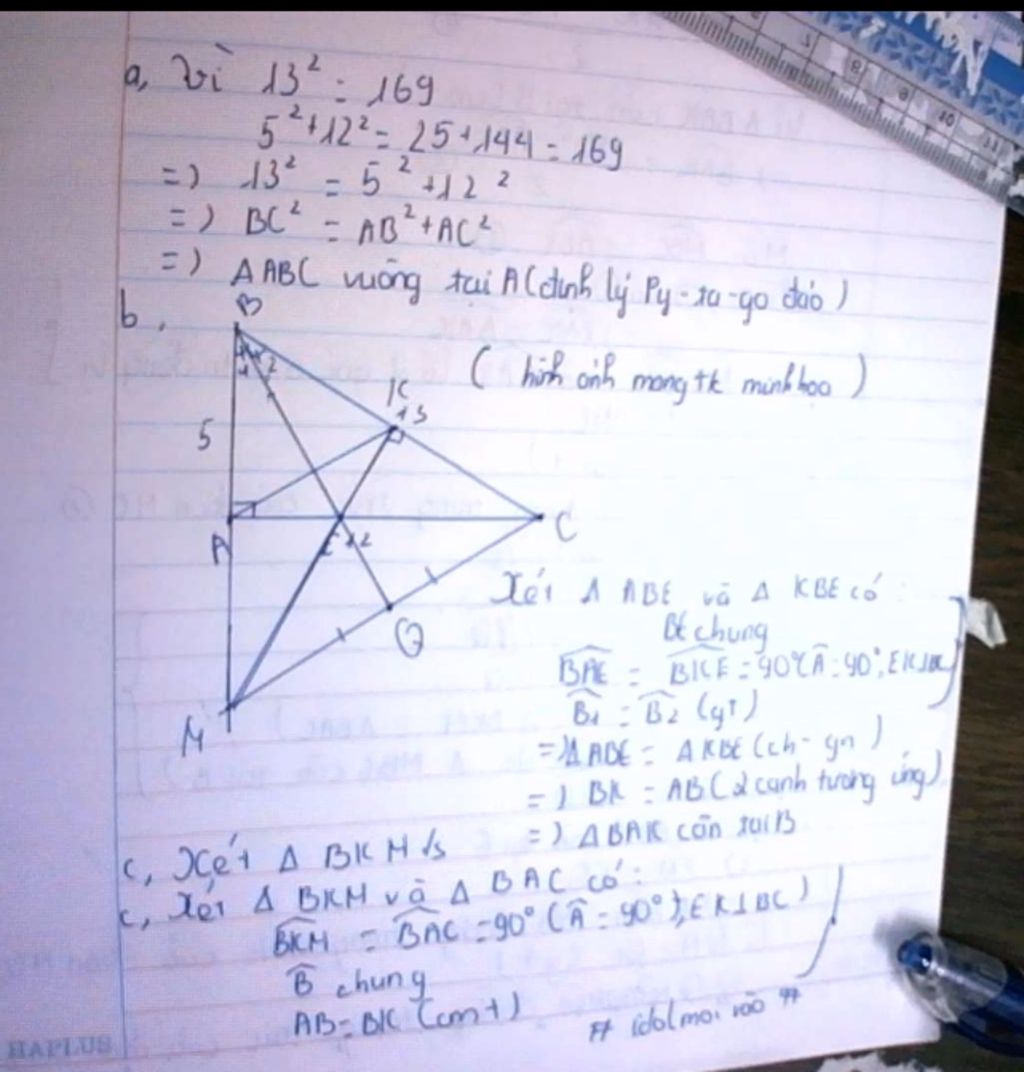 a, Vì 13² = 169
5² + 12² = 25 + 144 = 169
=) 13² = 5² + 12²
=) BC² = AB² + AC²
=) ΔABC vuông tại A (định lý Py-ta-go đảo)
b,
B
1 2
(hình ảnh mang tk minh hoạ)
K
13
5
A
E 12
C
Q
M
Xét Δ ABE và Δ KBE có:
BE chung
BAE = BKE = 90° (A = 90°, EK⊥BC)
B1 = B2 (gt)
=) ΔABE = ΔKBE (ch - gn)
=) BK = AB (2 cạnh tương ứng)
=) ΔBAK cân tại B
c, Xét Δ BKM
c, Xét Δ BKM và Δ BAC có:
BKM = BAC = 90° (A = 90°), EK⊥BC)
B chung
AB = BK (cmt)
HAPLUS